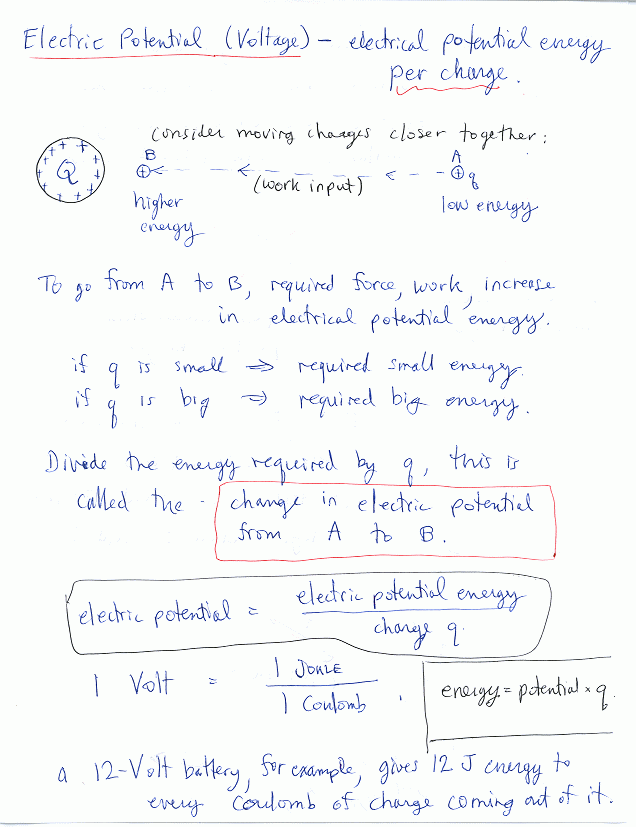 Electric Potential (Voltage) – electrical potential energy
per charge.
Consider moving charges closer together:
+ + + + + + + + + + + Q
B A
⊕ ← - - - ← - - - - ← - - ⊕ q
(work input)
higher low energy
energy
To go from A to B, required force, work, increase
in electrical potential energy.
if q is small ⇒ required small energy.
if q is big ⇒ required big energy.
Divide the energy required by q, this is
called the change in electric potential
from A to B.
electric potential = electric potential energy
change q.
1 Volt = 1 Joule
1 Coulomb .
energy = potential × q
a 12-Volt battery, for example, gives 12 J energy to
every Coulomb of charge coming out of it.